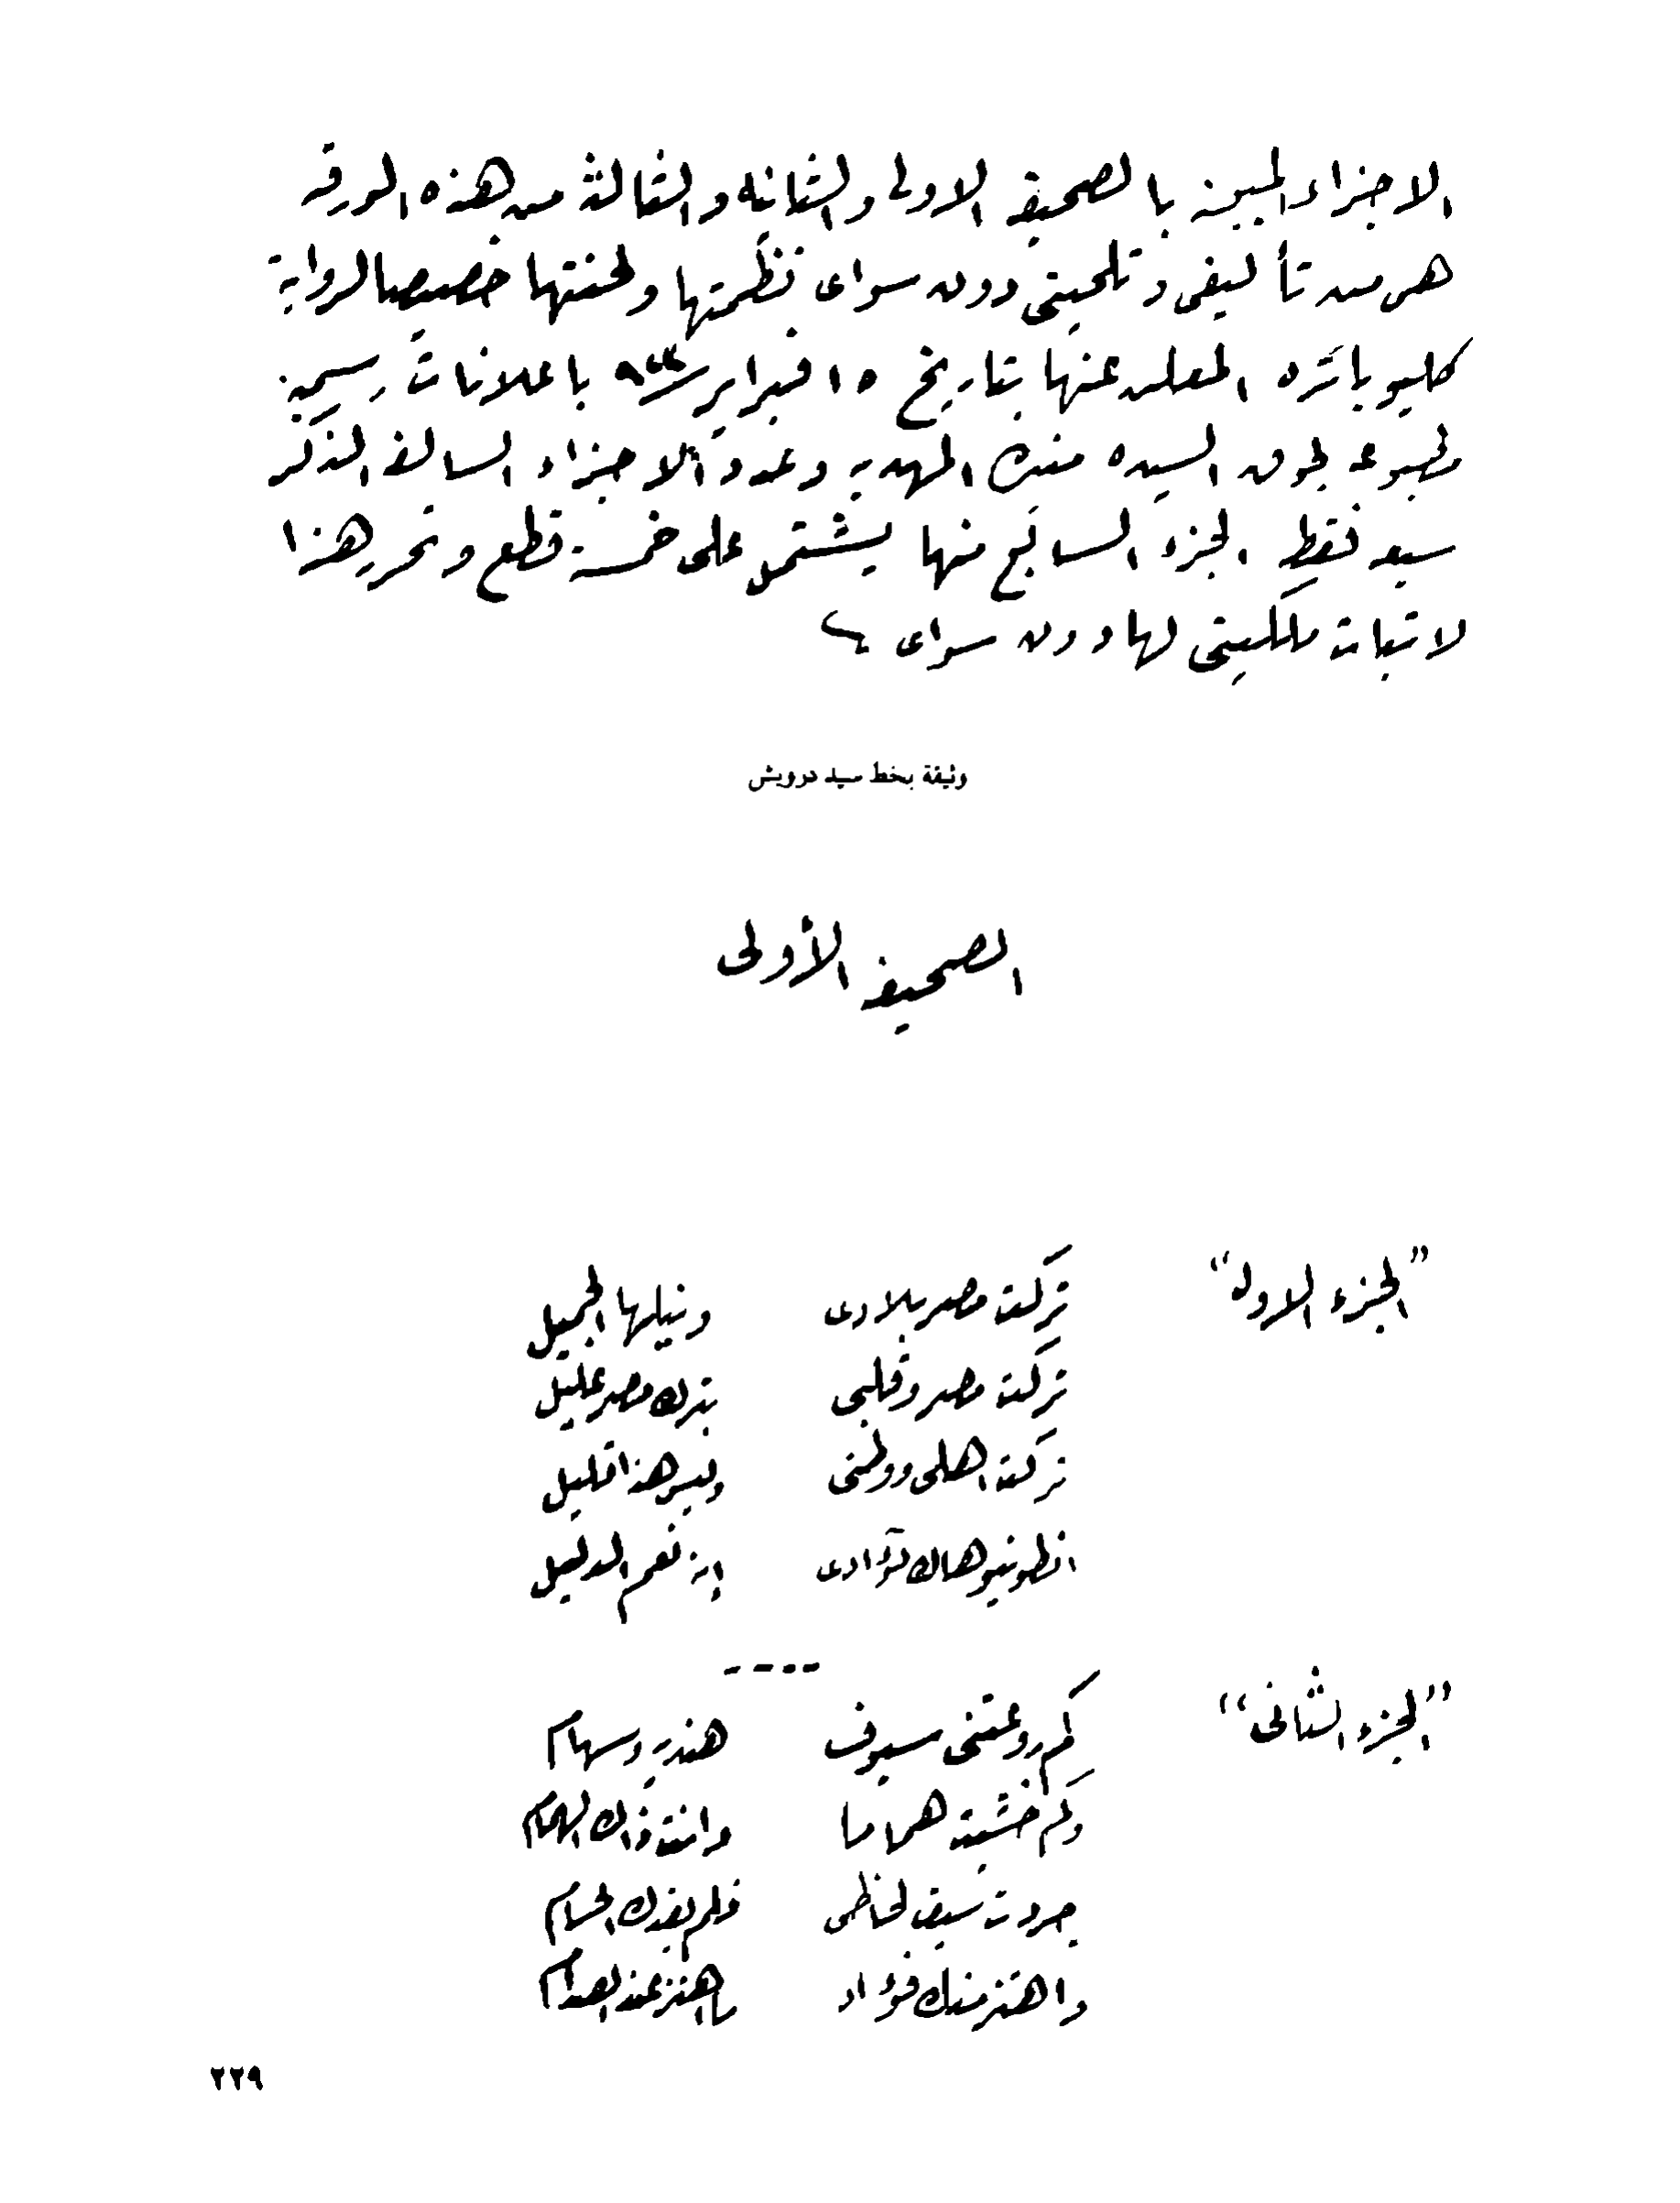 الاجزاء المبينة بالصحيفة الاولى والثانية والثالثة من هذه الورقة
هى من تأليفى وتلحينى دون سواى نظمتها ولحنتها خصيصا لرواية
كليوباتره المعلن عنها بتاريخ ١٥ فبراير سنة باعلانات رسمية
مطبوعة لجوق السيده منيره المهدية وعدد الاجزاء السالفة الذكر
سبعة فقط الجزء السابع منها يشتمل على خمسة قطع وتحرر هذا
لاثبات ملكيتى لها دون سواى
وثيقة بخط سيد درويش
الصحيفة الأولى
"الجزء الاول"
تركت مصر بلادى ونيلها الجميل
تركت مصر وقلبى بترك مصر عليل
تركت اهلى ووطنى وليس هذا قليل
انطونيو هاك فؤادى إنه نعم الدليل
----
"الجزء الثانى"
كم روعتنى سيوف هندية وسهام
وكم خشيت هماما وانت ذاك الهمام
جردت سيف لحاظى فلم يفدك الحسام
واهتز منك فؤاد ما اهتز عند الصدام
٢٢٩